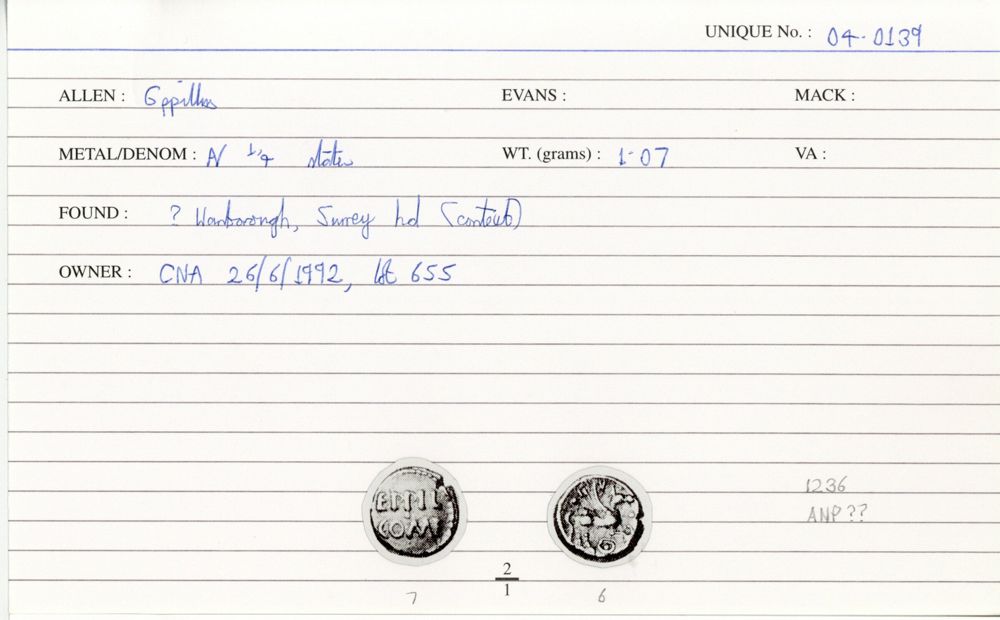 UNIQUE No. : 04·0139
ALLEN : Eppillus EVANS : MACK :
METAL/DENOM : AV 1/4 stater WT. (grams) : 1·07 VA :
FOUND : ? Wanborough, Surrey hd (context)
OWNER : CNA 26/6/1992, lot 655
EPPIL
COMM
1236
ANP ??
2
1
7 6